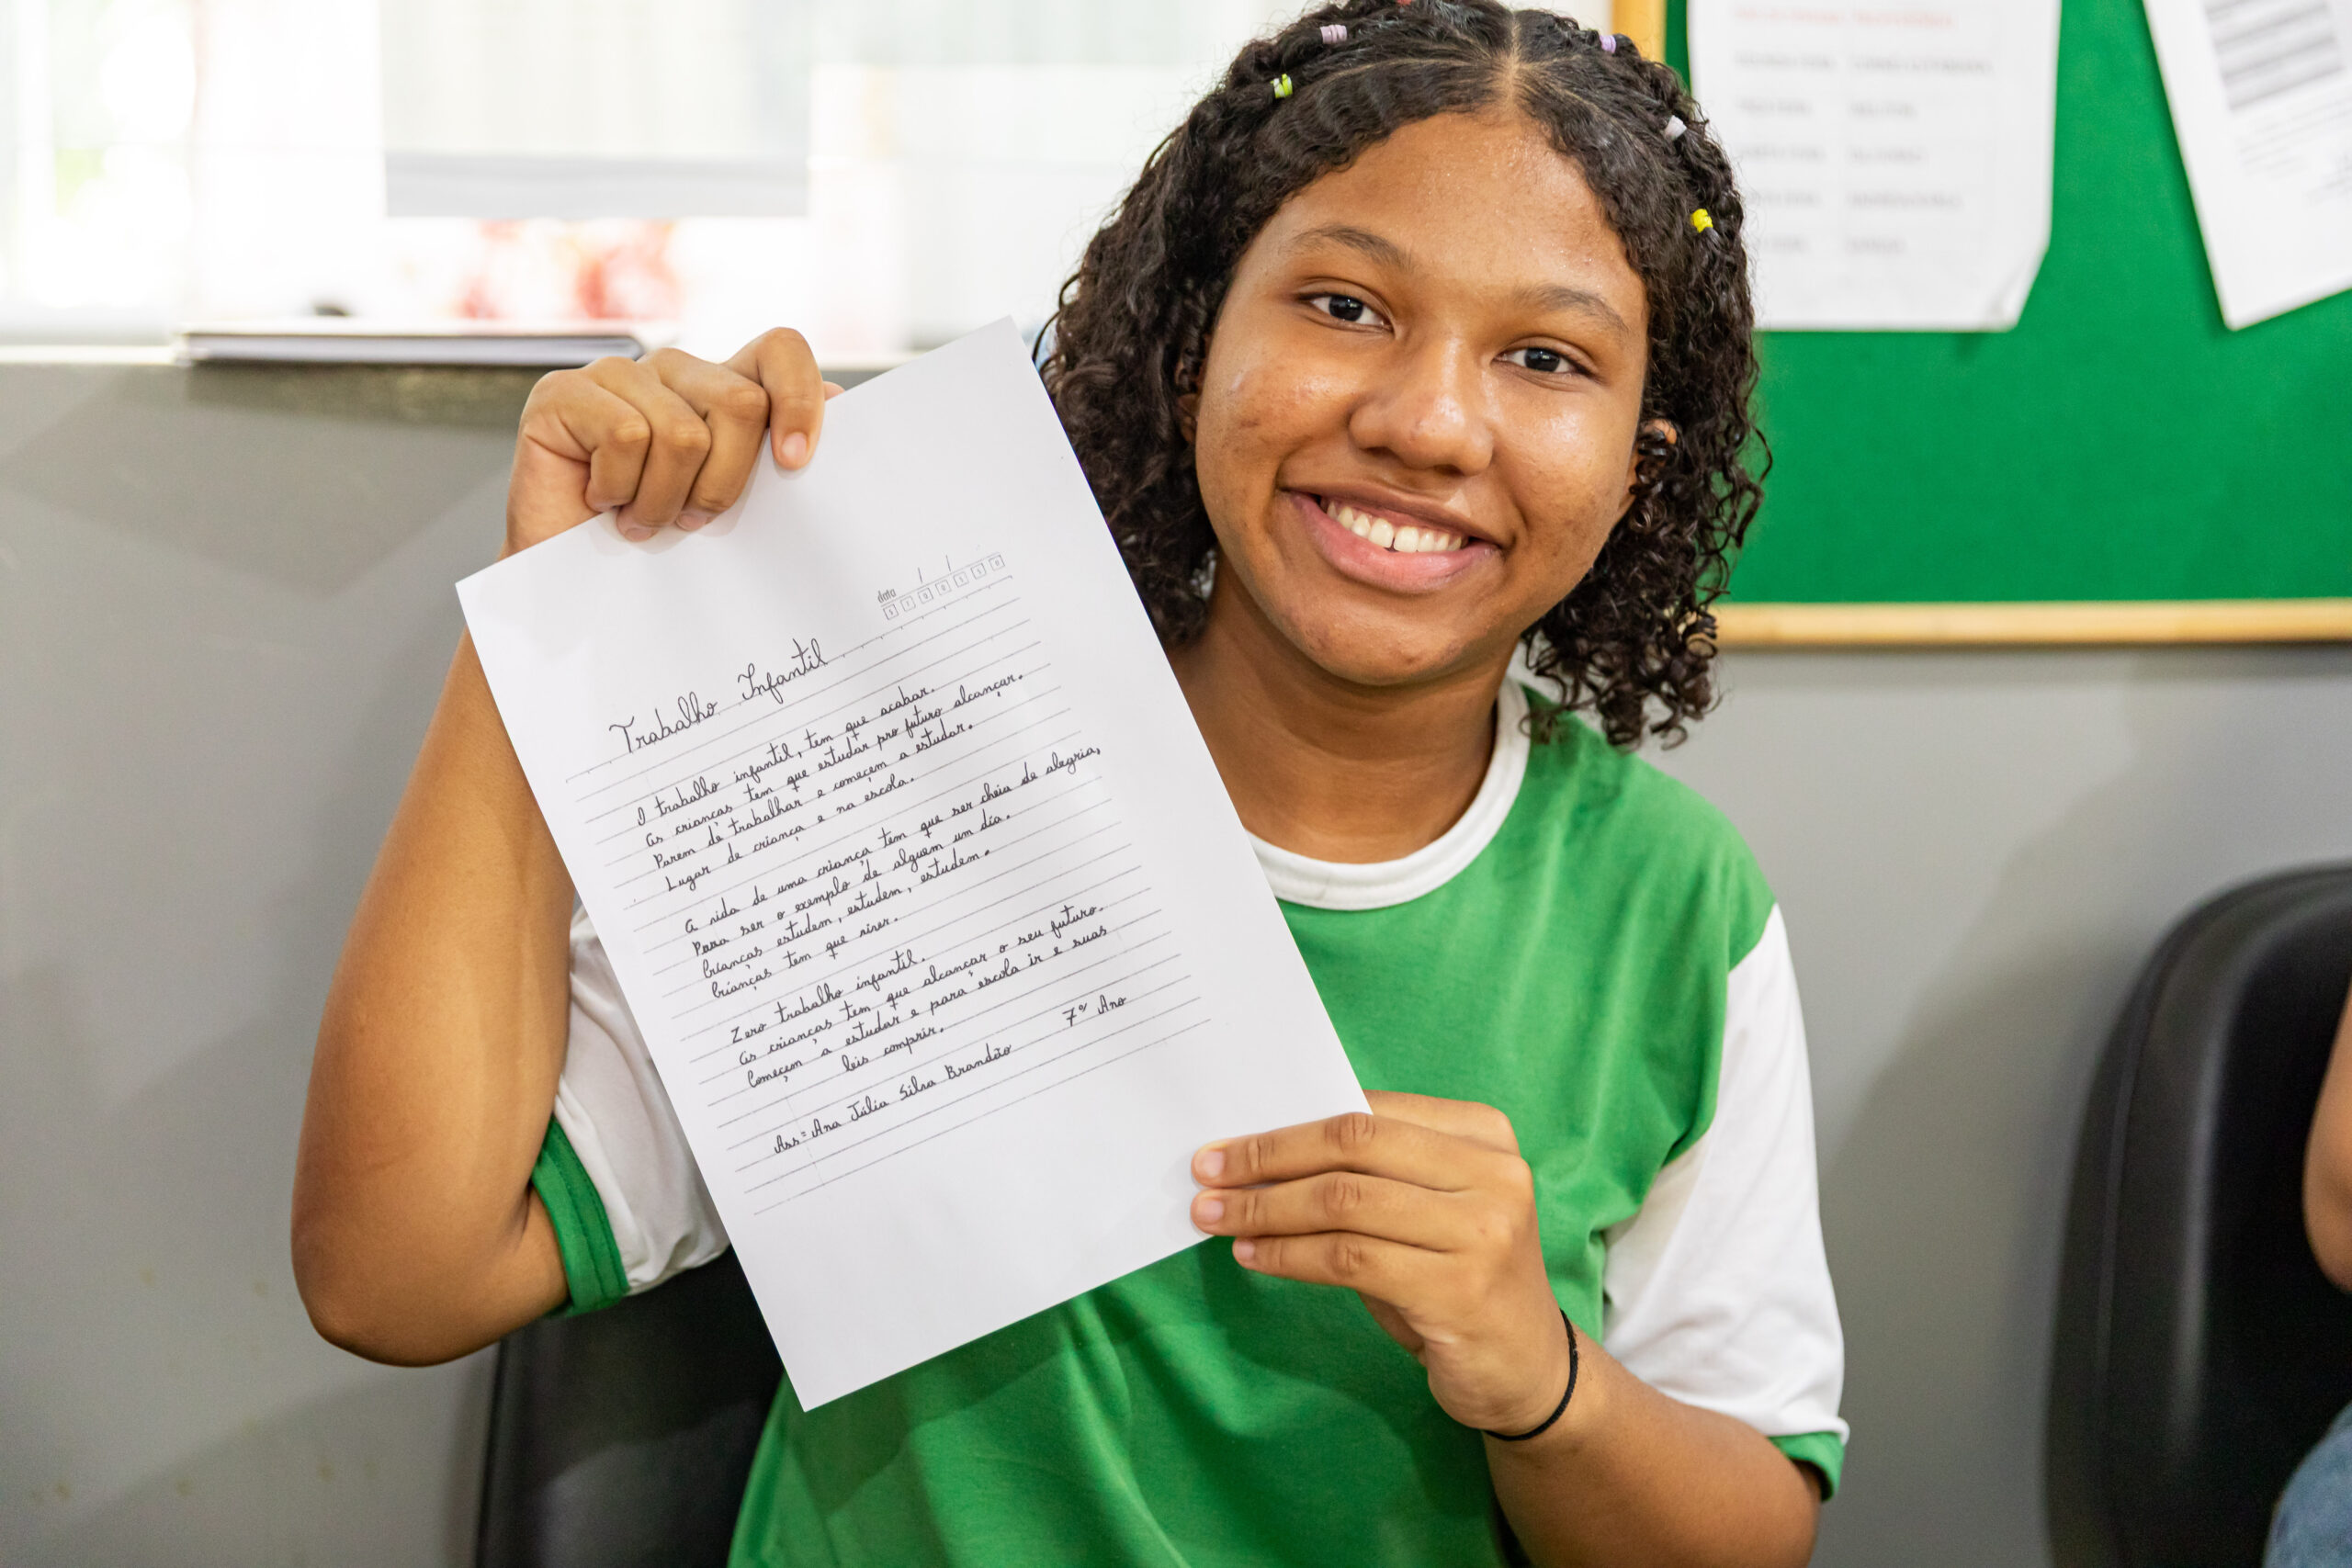 data
Trabalho Infantil
O trabalho infantil, tem que acabar.
As crianças tem que estudar pro futuro alcançar.
Parem de trabalhar e começem a estudar.
Lugar de criança e na escola.
A vida de uma criança tem que ser cheia de alegria,
Para ser o exemplo de alguem um dia.
Crianças estudem, estudem, estudem.
Crianças tem que viver.
Zero trabalho infantil.
As crianças tem que alcancar o seu futuro.
Começem a estudar e para escola ir e suas
leis comprir.
Ass= Ana Júlia Silva Brandão 7º Ano